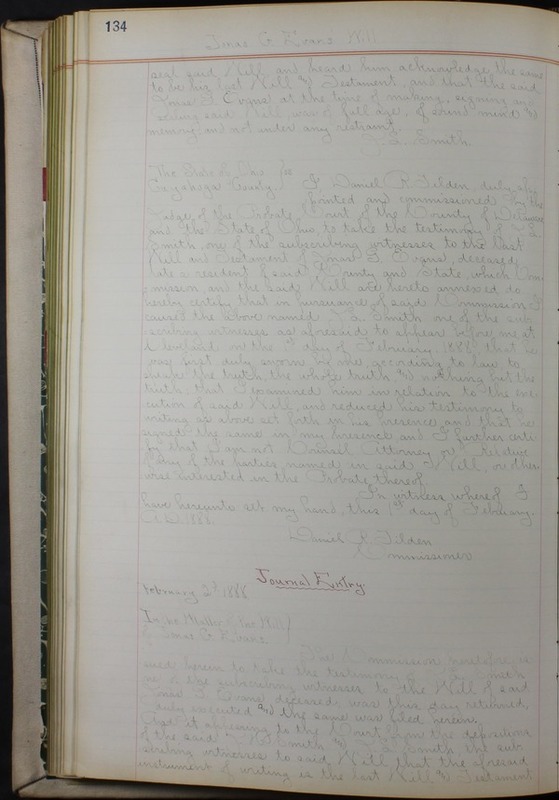 134
Jonas G. Evans Will
seal said Will and heard him acknowledge the same
to be his last Will and Testament, and that the said
Jonas G. Evans at the time of making, signing and
sealing said Will, was of full age, of sound mind and
memory and not under any restraint.
Smith.
The State of Ohio } ss
Cuyahoga County. } I, Daniel R. Tilden, duly ap
pointed and commissioned by the
Judge of the Probate Court of the County of Delaware
and the State of Ohio, to take the testimony of
Smith, one of the subscribing witnesses to the last
Will and Testament of Jonas G. Evans, deceased,
late a resident of said County and State, which Com
mission and the said Will are hereto annexed do
hereby certify that in pursuance of said Commission I
caused the above named Smith one of the sub
scribing witnesses as aforesaid to appear before me at
Cleveland on the 1st day of February, 1888 that he
was first duly sworn by me according to law to
speak the truth, the whole truth and nothing but the
truth, that I examined him in relation to the exe
cution of said Will, and reduced his testimony to
writing as above set forth in his presence, and that he
signed the same in my presence, and I further certi
fy that I am not Counsel Attorney or Relative
of any of the parties named in said Will, or other
wise interested in the Probate thereof.
In witness whereof I
have hereunto set my hand, this 1st day of February,
A.D. 1888.
Daniel R. Tilden
Commissioner
Journal Entry.
February 2d 1888
In the Matter of the Will }
of Jonas G. Evans. }
The Commission heretofore is
sued herein to take the testimony of Smith
one of the subscribing witnesses to the Will of said
Jonas G. Evans deceased, was this day returned,
duly executed and the same was filed herein,
And it appearing to the Court from the depositions
of the said Smith and Smith the sub
scribing witnesses to said Will that the aforesaid
instrument of writing is the last Will and Testament